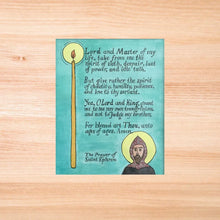 Lord and Master of my
life, take from me the
spirit of sloth, despair, lust
of power, and idle talk.
But give rather the spirit
of chastity, humility, patience,
and love to thy servant.
Yea, O Lord and King, grant
me to see my own transgressions,
and not to judge my brother;
For blessed art Thou, unto
ages of ages. Amen.
The Prayer of
Saint Ephrem